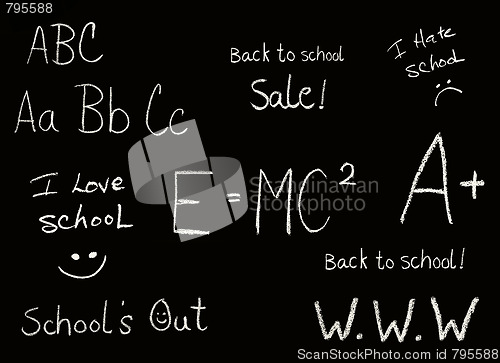 # 795588
ABC
Back to school
Sale!
I Hate
school
Aa Bb Cc
I Love
school
E=MC²
A+
Back to school!
School's Out
W.W.W
StockphotoImages
StockphotoImages.com # 795588